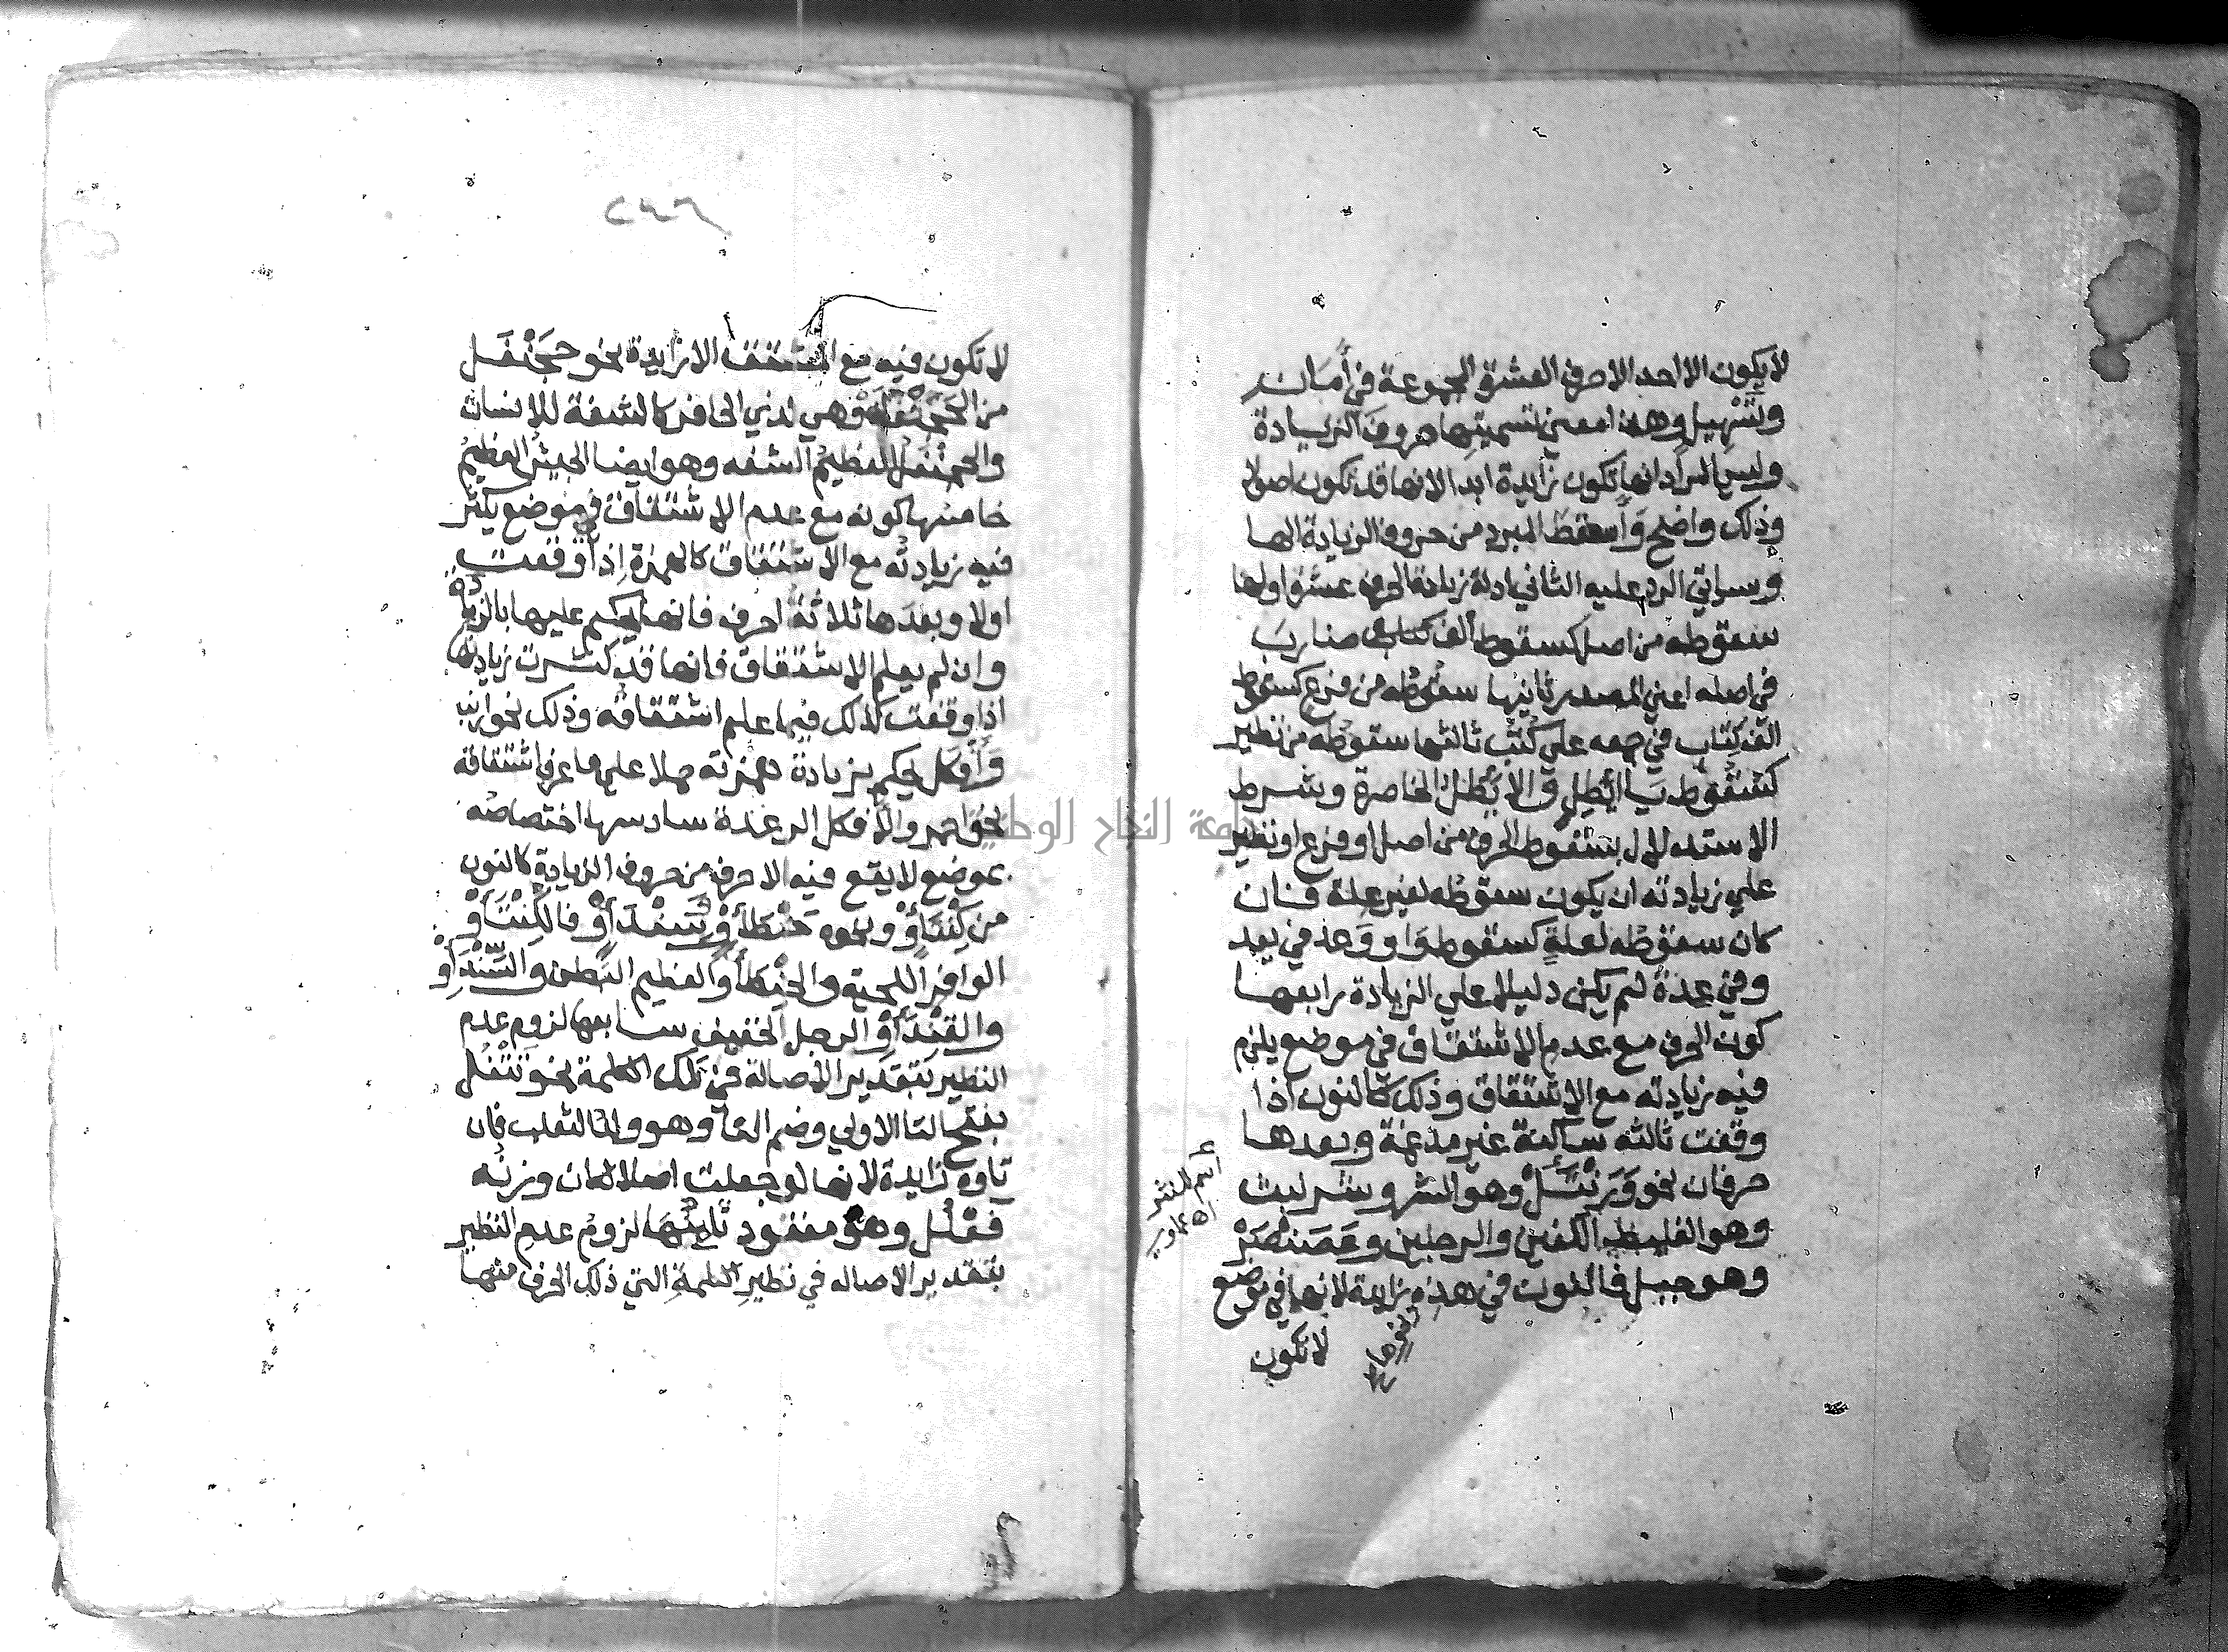 لا يكون الا احد الاحرف العشرة المجموعة في أمان
وتسهيل وهذا معني تسميتها حروف الزيادة
وليس المراد انها تكون زايدة ابدا لانها قد تكون اصولا
وذلك واضح وأسقط المبرد من حروف الزيادة الها
وسياتي الرد عليه الثاني ادلة زيادة الحرف عشرة اولها
سقوطه من اصل كسقوط ألف ضارب
في اصله اعني المصدر ثانيها سقوطه من فرع كسقوط
الف كتاب في جمعه علي كتب ثالثها سقوطه من نظير
كسقوط يا أيطل في الأيطل الخاصرة وشرط
الاستدلال بسقوط الحرف من اصل او فرع او نظير
علي زيادته ان يكون سقوطه لغير علة فان
كان سقوطه لعلة كسقوط واو وعد في يعد
وفي عدة لم يكن دليلا علي الزيادة رابعها
كون الحرف مع عدم الاشتقاق في موضع يلزم
فيه زيادته مع الاشتقاق وذلك كالنون اذا
وقعت ثالثه ساكنة غير مدغمة وبعدها
حرفان نحو ورنتل وهو الشر وشرنبث
وهو الغليظ الكفين والرجلين وعصنصر
وهو جبل فالنون في هذه زايدة لانها في موضع
لا تكون
٢٤٦
لا تكون فيه مع المشتق الا زايدة نحو جحنفل
من الجحفلة وهي لذي الحافر كالشفة للانسان
والجحنفل العظيم الشفه وهو ايضا الجيش العظيم
خامسها كونه مع عدم الاشتقاق في موضع يكثر
فيه زيادته مع الاشتقاق كالهمزة إذا وقعت
اولا وبعدها ثلاثة احرف فانها يحكم عليها بالزيادة
وان لم يعلم الاشتقاق فانها قد كثرت زيادتها
اذا وقعت كذلك فيما علم اشتقاقه وذلك نحو ارنب
وأفكل يحكم بزيادة همزته حملا علي ما عرف اشتقاقه
نحو احمر والأفكل الرعدة سادسها اختصاصه
بموضع لا يقع فيه الا حرف من حروف الزيادة كالنون
من كنتأو ونحوه حنطأو وسندأو فالكنتأو
الوافر اللحية والحنطأو العظيم البطن والسندأو
والقندأو الرجل الخفيف سابعها لزوم عدم
النظير بتقدير الأصالة في تلك الكلمة نحو تتفل
بفتح التا الاولي وضم الفا وهو ولد الثعلب فان
تاوه زايدة لانها لو جعلت اصلا لكان وزنه
فعلل وهو مفقود ثامنها لزوم عدم النظير
بتقدير الاصاله في نظير الكلمة التي ذلك الحرف منها
جامعة النجاح الوطنية